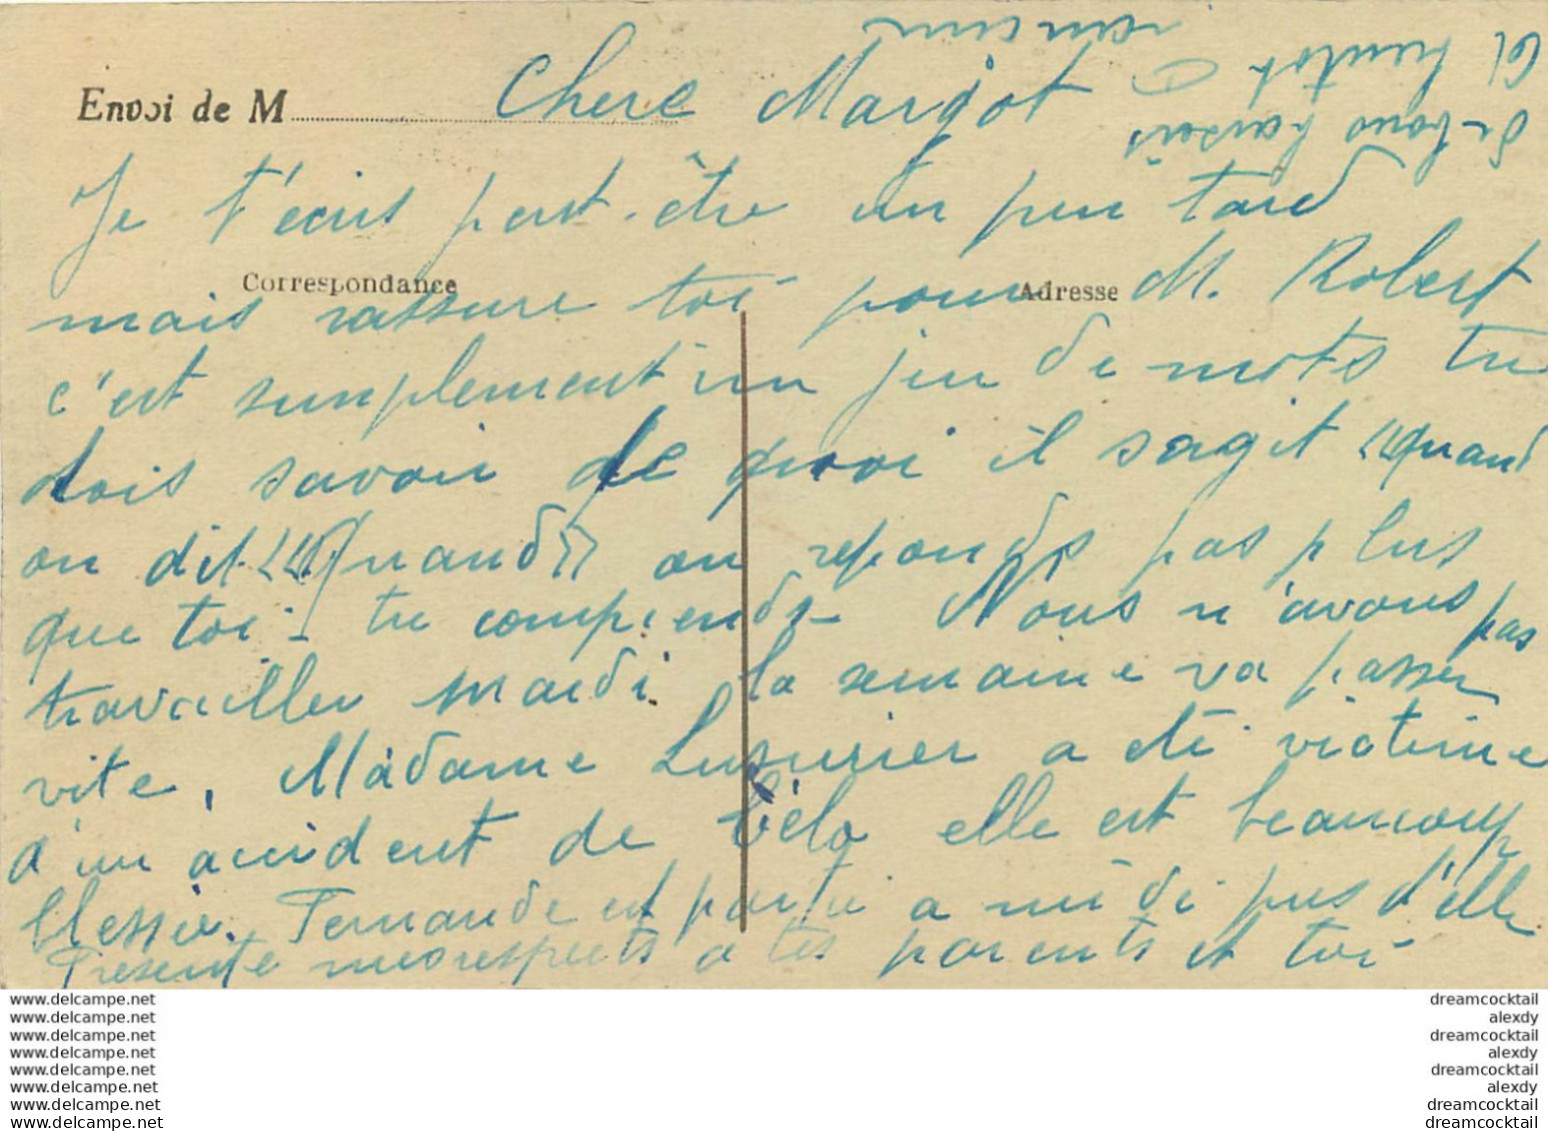 Envoi de M
Chere Margot
Je t'ecris peut-être un peu tard
Correspondance
Adresse
mais rassure toi pour M. Robert
c'est simplement un jeu de mots tu
dois savoir de quoi il sagit "quand
on dit "Quand" on reponds pas plus
que toi - tu comprends - Nous n'avons pas
travailler mardi la semaine va passer
vite, Madame a été victime
d'un accident de vélo elle est beaucoup
blessée. Fernande est partie a midi pres d'elle
Presente mes respects a tes parents et toi
de bons baisers
a bientot
www.delcampe.net
www.delcampe.net
www.delcampe.net
www.delcampe.net
www.delcampe.net
www.delcampe.net
www.delcampe.net
www.delcampe.net
dreamcocktail
alexdy
dreamcocktail
alexdy
dreamcocktail
alexdy
dreamcocktail
dreamcocktail